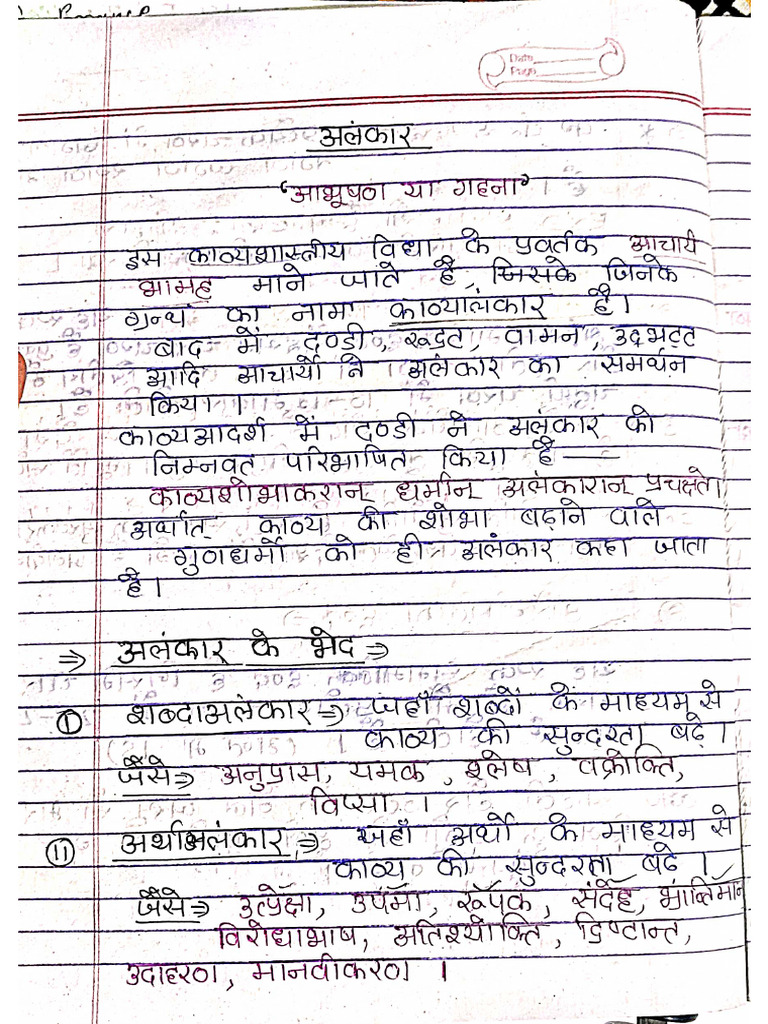 Date
Page
अलंकार
'आभूषण या गहना'
इस काव्यशास्तीय विधा के प्रवर्तक आचार्य
भामह माने जाते है, जिसके जिनके
ग्रन्थ का नामा काव्यालंकार है।
बाद में दण्डी, रूद्रट, वामन, उद्भट्ट
आदि आचार्यो ने अलंकार का समर्थन
किया।
काव्यआदर्श में दण्डी ने अलंकार को
निम्नवत परिभाषित किया है —
काव्यशोभाकरान् धर्मान अलंकारान् प्रचक्षते।
अर्थात् काव्य की शोभा बढ़ाने वाले
गुणधर्मो को ही अलंकार कहा जाता
है।
⇒ अलंकार के भेद ⇒
① शब्दाअलंकार ⇒ जहाँ शब्दों के माध्यम से
काव्य की सुन्दरता बढ़े।
जैसे ⇒ अनुप्रास, यमक, श्लेष, वक्रोक्ति,
विप्सा।
⑪ अर्थाअलंकार ⇒ जहाँ अर्थो के माध्यम से
काव्य की सुन्दरता बढ़े।
जैसे ⇒ उत्प्रेक्षा, उपमा, रूपक, संदेह, भ्रांतिमान
विरोधाभाष, अतिश्योक्ति, द्रिष्टान्त,
उदाहरण, मानवीकरण।